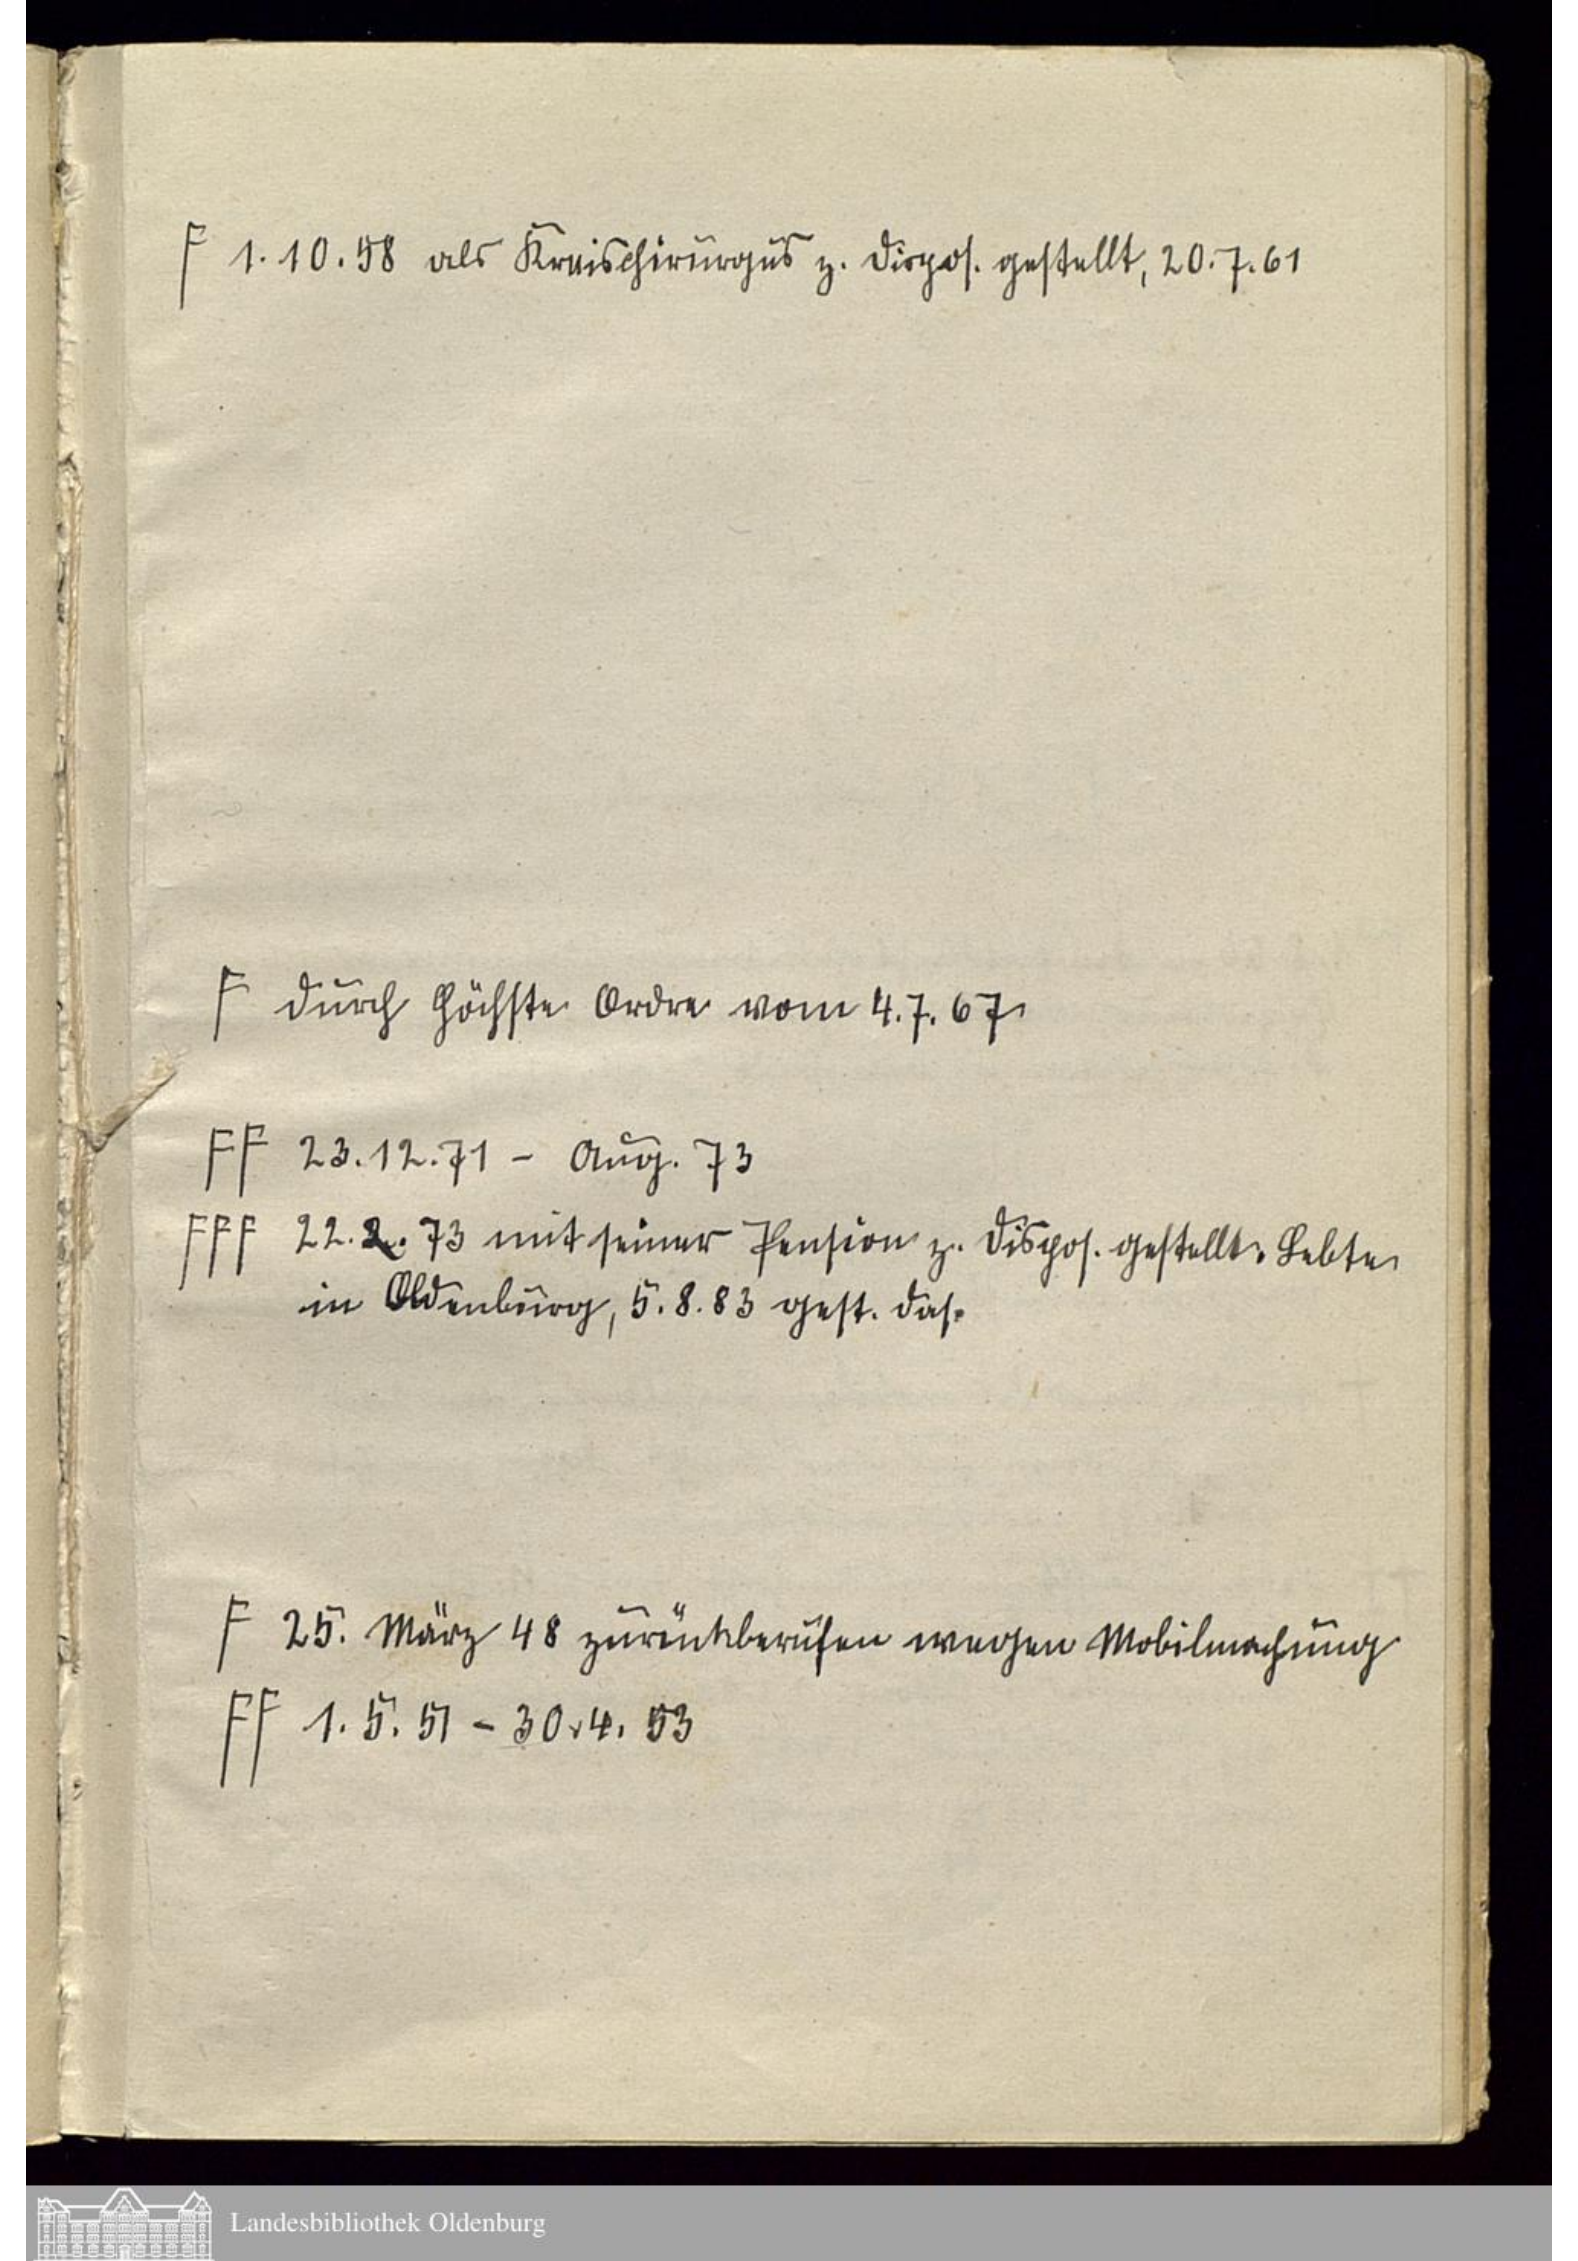 F 1.10.58 als Kreischirurgus z. Dispos. gestellt, 20.7.61
F durch Höchste Ordre vom 4.7.67
FF 23.12.71 - Aug. 73
FFF 22.2.73 mit seiner Pension z. Dispos. gestellt. Lebte
in Oldenburg, 5.8.83 gest. das.
F 25. März 48 zurückberufen wegen Mobilmachung
FF 1.5.51 - 30.4.53
Landesbibliothek Oldenburg